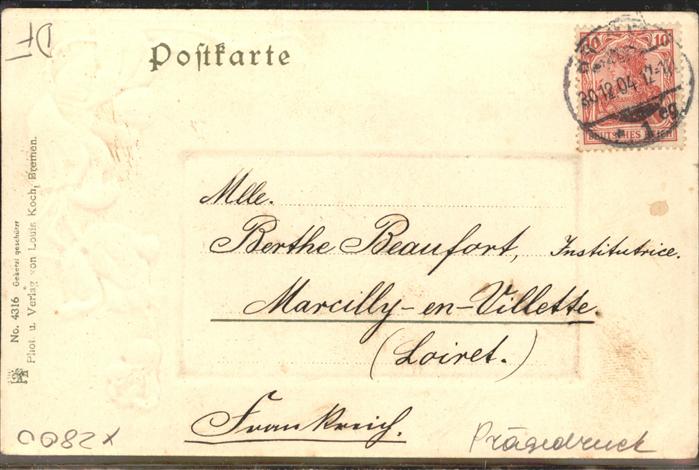 DF1
Postkarte
10 10
30.12.04.12-1
DEUTSCHES REICH
Mlle.
Berthe Beaufort, Institutrice.
Marcilly-en-Villette.
(Loiret.)
Frankreich.
Prägedruck
No. 4316 Gesetzl geschützt
Phot. u. Verlag von Louis Koch, Bremen.